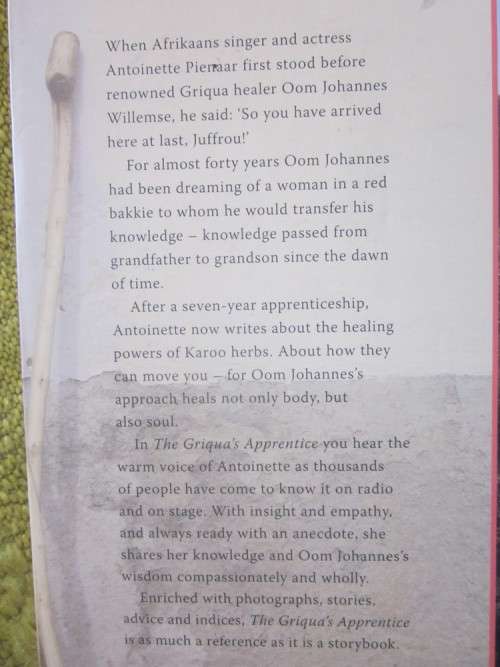 When Afrikaans singer and actress
Antoinette Pienaar first stood before
renowned Griqua healer Oom Johannes
Willemse, he said: ‘So you have arrived
here at last, Juffrou!’
For almost forty years Oom Johannes
had been dreaming of a woman in a red
bakkie to whom he would transfer his
knowledge – knowledge passed from
grandfather to grandson since the dawn
of time.
After a seven-year apprenticeship,
Antoinette now writes about the healing
powers of Karoo herbs. About how they
can move you – for Oom Johannes’s
approach heals not only body, but
also soul.
In The Griqua’s Apprentice you hear the
warm voice of Antoinette as thousands
of people have come to know it on radio
and on stage. With insight and empathy,
and always ready with an anecdote, she
shares her knowledge and Oom Johannes’s
wisdom compassionately and wholly.
Enriched with photographs, stories,
advice and indices, The Griqua’s Apprentice
is as much a reference as it is a storybook.